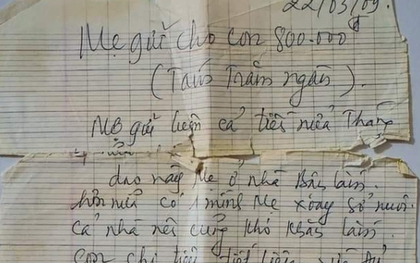 22/03/09.
Mẹ gửi cho con 800.000đ
(Tám Trăm ngàn).
Mẹ gửi luôn cả tiền nửa Tháng
dạo này Mẹ ở nhà Bận lắm.
hơn nữa có 1 mình Mẹ xoay sở nuôi
cả nhà nên cũng khó khăn lắm
con chi tiêu tiết kiệm